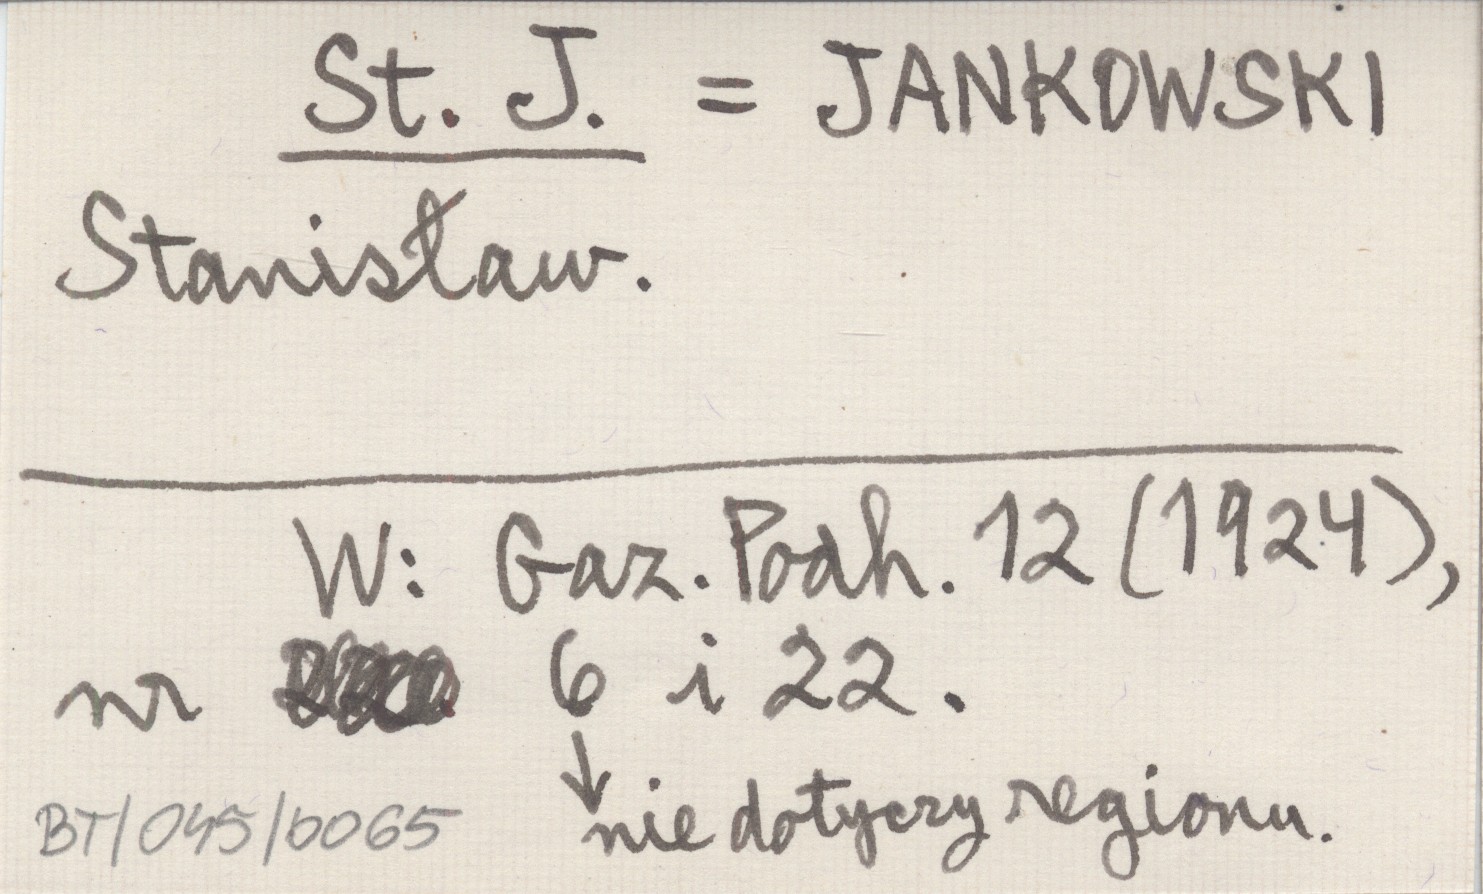 St. J. = JANKOWSKI
Stanisław.
W: Gaz. Podh. 12 (1924),
nr 6 i 22.
↓ nie dotyczy regionu.
BT/045/0065